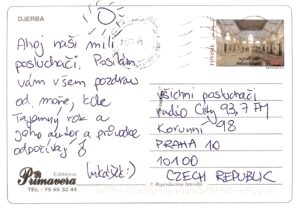 DJERBA
Ahoj naši milí
posluchači. Posílám
vám všem pozdrav
od moře, kde
Tajemný rok a
jeho autor a průvodce
odpočívají
Lukášek:)
všichni posluchači
radio City 93,7 FM
Korunní 98
PRAHA 10
101 00
CZECH REPUBLIC
Editions
Primavera
TEL : 75 65 32 44
© Reproduction Interdite